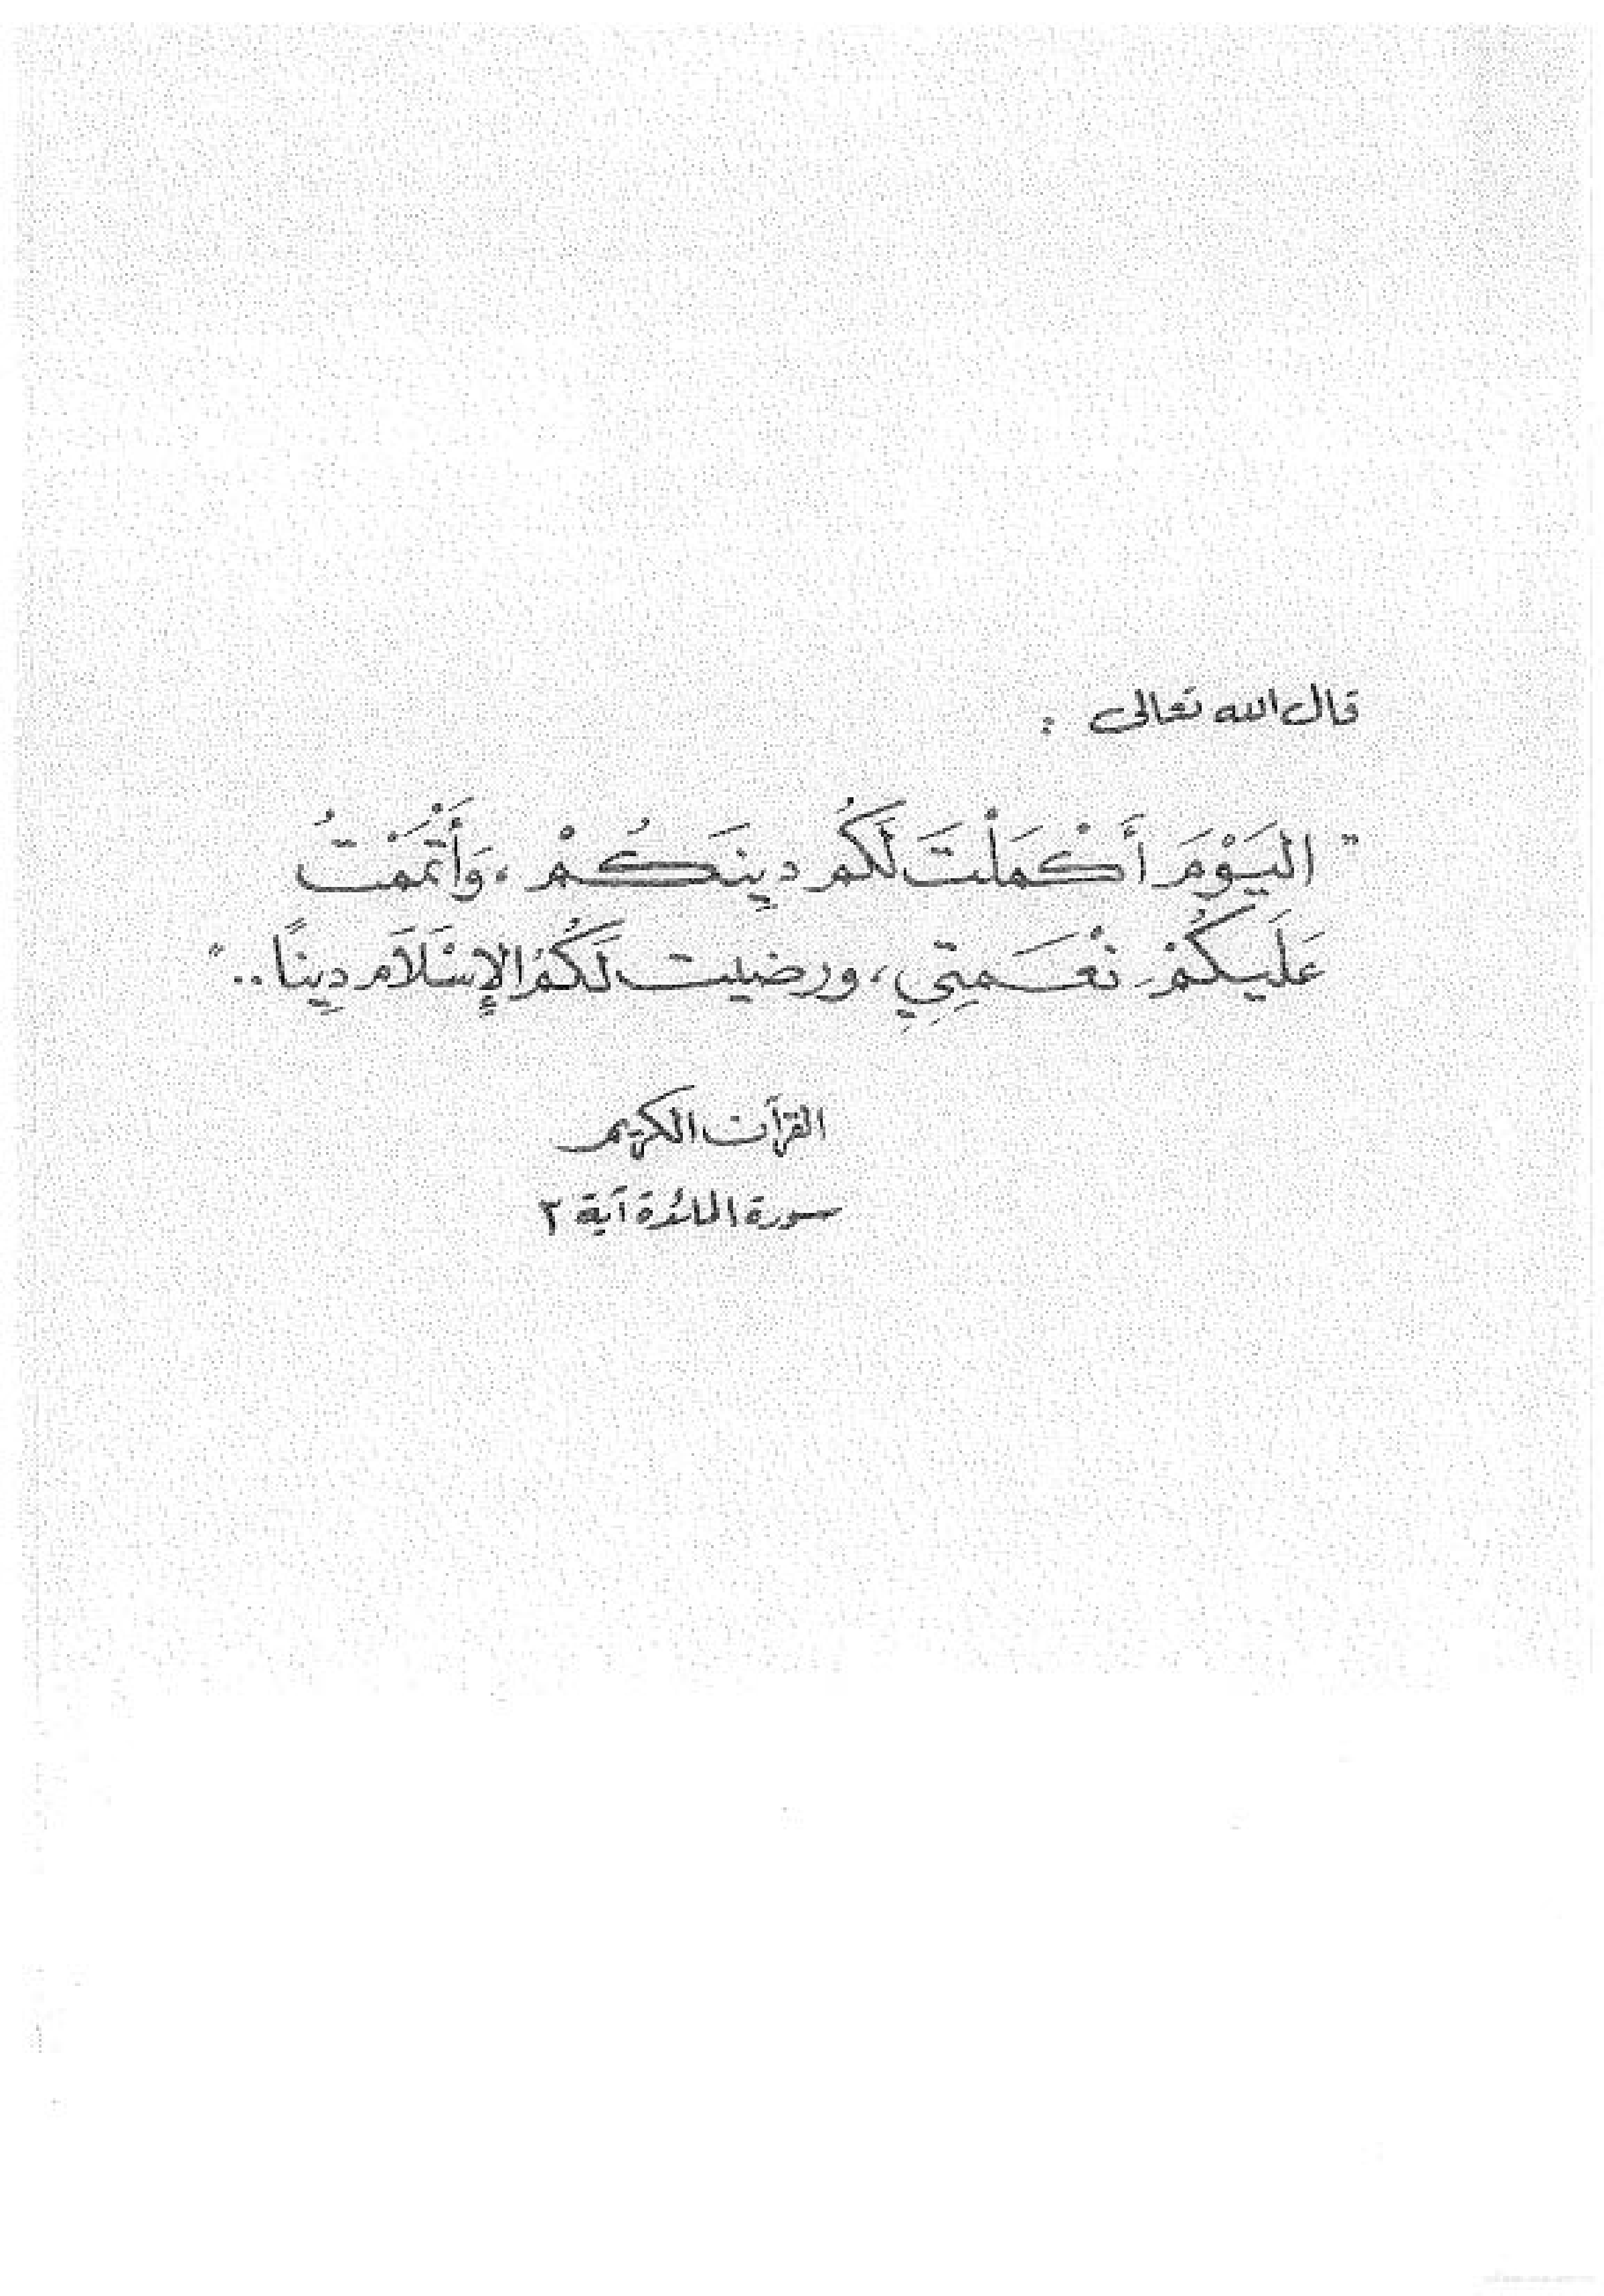 قال الله تعالى :
" اليَوْمَ أَكْمَلْتَ لَكُم دِينَكُمْ ، وَأَتْمَمْتُ
عَلَيكُمْ نْعَمِتِي ، ورضيت لَكُمُ الإِسْلَامَ دِينًا .. "
القرآن الكريم
سورة المائدة آية ٣